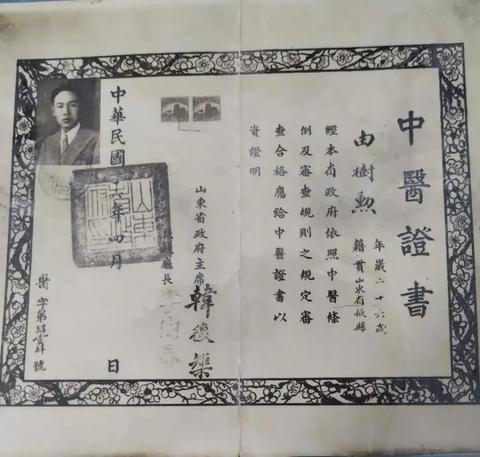 中醫證書
由樹勲
年歲二十六歲
籍貫山東省掖縣
經本省政府依照中醫條
例及審查規則之規定審
查合格應給中醫證書以
資證明
山東省政府主席韓復榘
廳長
中華民國 年四月 日
醫字第 號